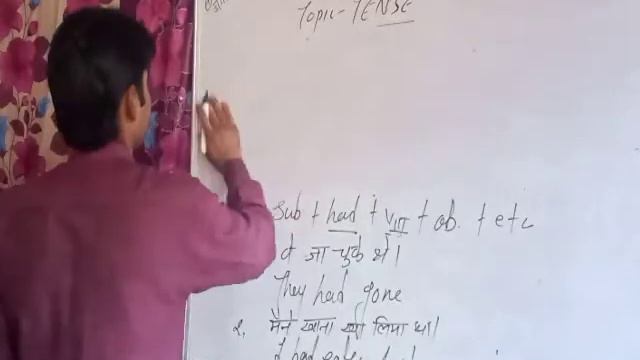 Topic - TENSE
Sub + had + VIII + ob. + etc
वे जा चुके थे।
They had gone
2. मैंने खाना खा लिया था।
I had